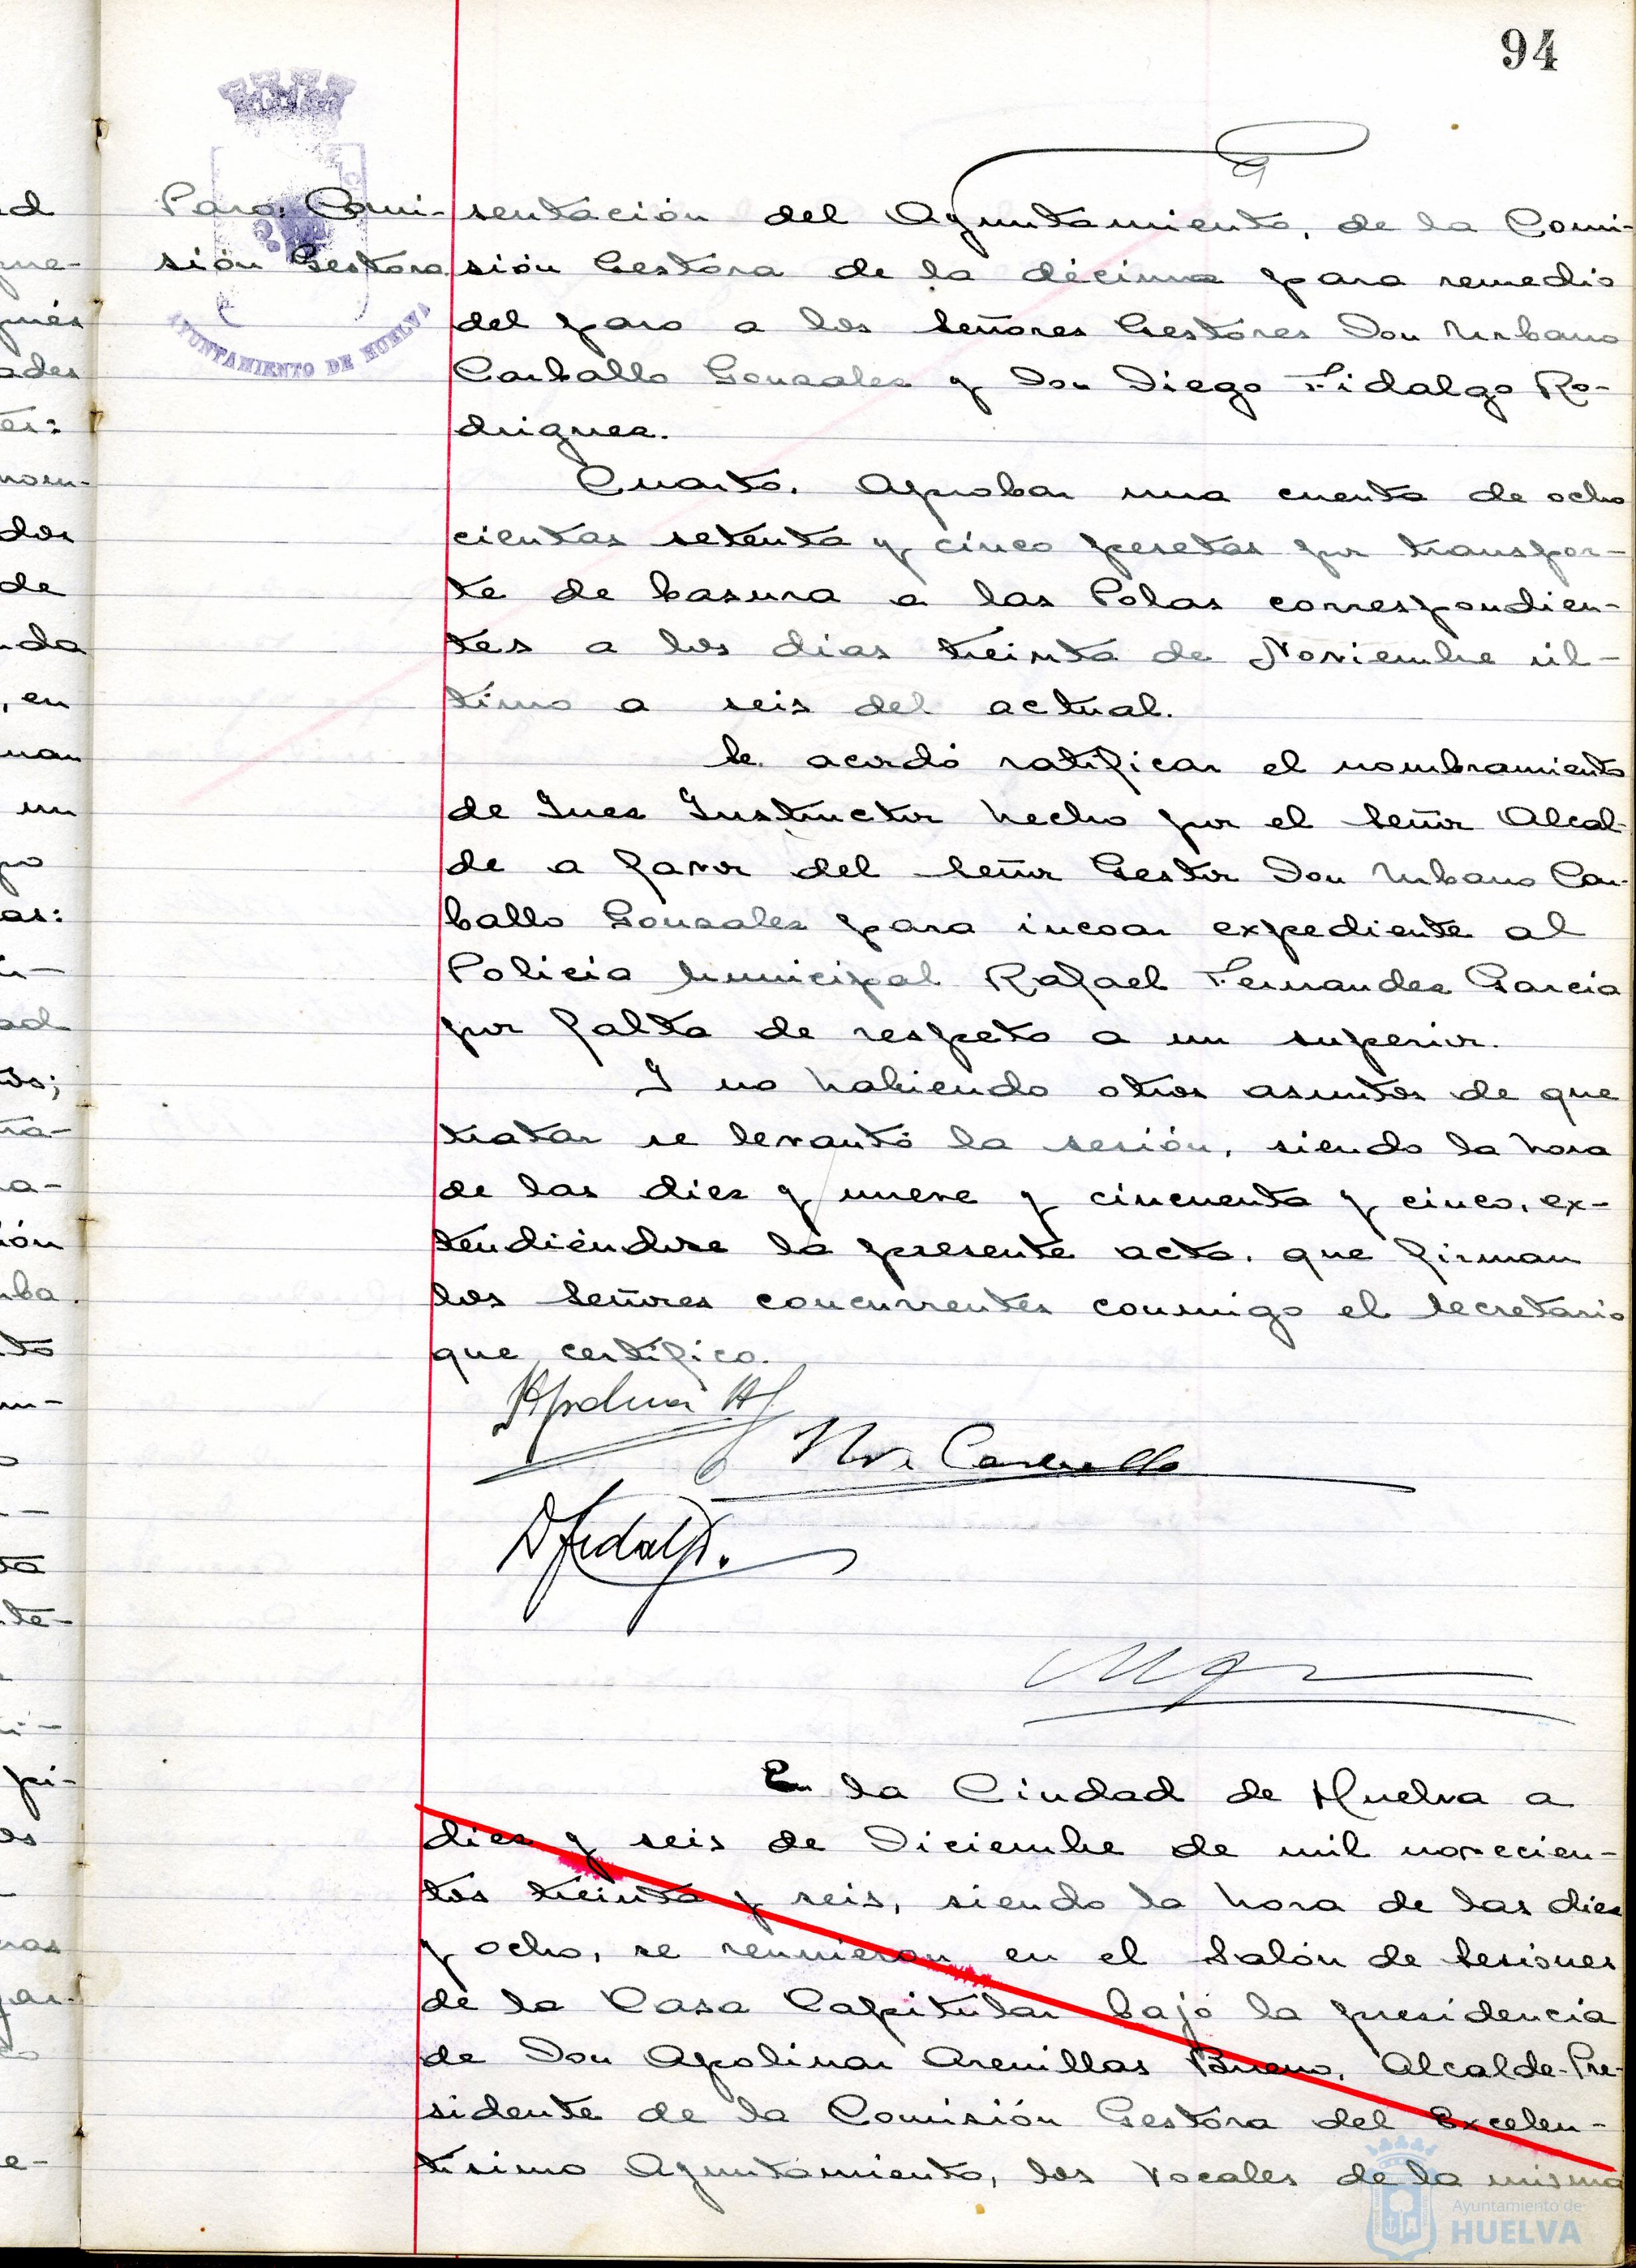 94
AYUNTAMIENTO DE HUELVA
Paro. Comi-
sión Gestora
sentación del Ayuntamiento, de la Comi-
sión Gestora de la décima para remedio
del paro a los Señores Gestores Don Urbano
Carballo Gonzalez y Don Diego Fidalgo Ro-
driguez.
Cuarto. Aprobar una cuenta de ocho
cientas setenta y cinco pesetas por transpor-
te de basura a las Polas correspondien-
tes a los dias treinta de Noviembre úl-
timo a seis del actual.
Se acordó ratificar el nombramiento
de Juez Instructor hecho por el Señor Alcal-
de a favor del Señor Gestor Don Urbano Car-
ballo Gonzalez para incoar expediente al
Policia Municipal Rafael Fernandez Garcia
por falta de respeto a un superior.
Y no habiendo otros asuntos de que
tratar se levantó la sesión, siendo la hora
de las diez y nueve y cincuenta y cinco, ex-
tendiéndose la presente acta, que firman
los Señores concurrentes conmigo el Secretario
que certifico.
Carballo
D Fidalgo.
En la Ciudad de Huelva a
diez y seis de Diciembre de mil novecien-
tos treinta y seis, siendo la hora de las diez
y ocho, se reunieron en el Salón de Sesiones
de la Casa Capitular bajo la presidencia
de Don Apolinar Arenillas Bueno, Alcalde-Pre-
sidente de la Comisión Gestora del Excelen-
tísimo Ayuntamiento, los Vocales de la misma
Ayuntamiento de
HUELVA